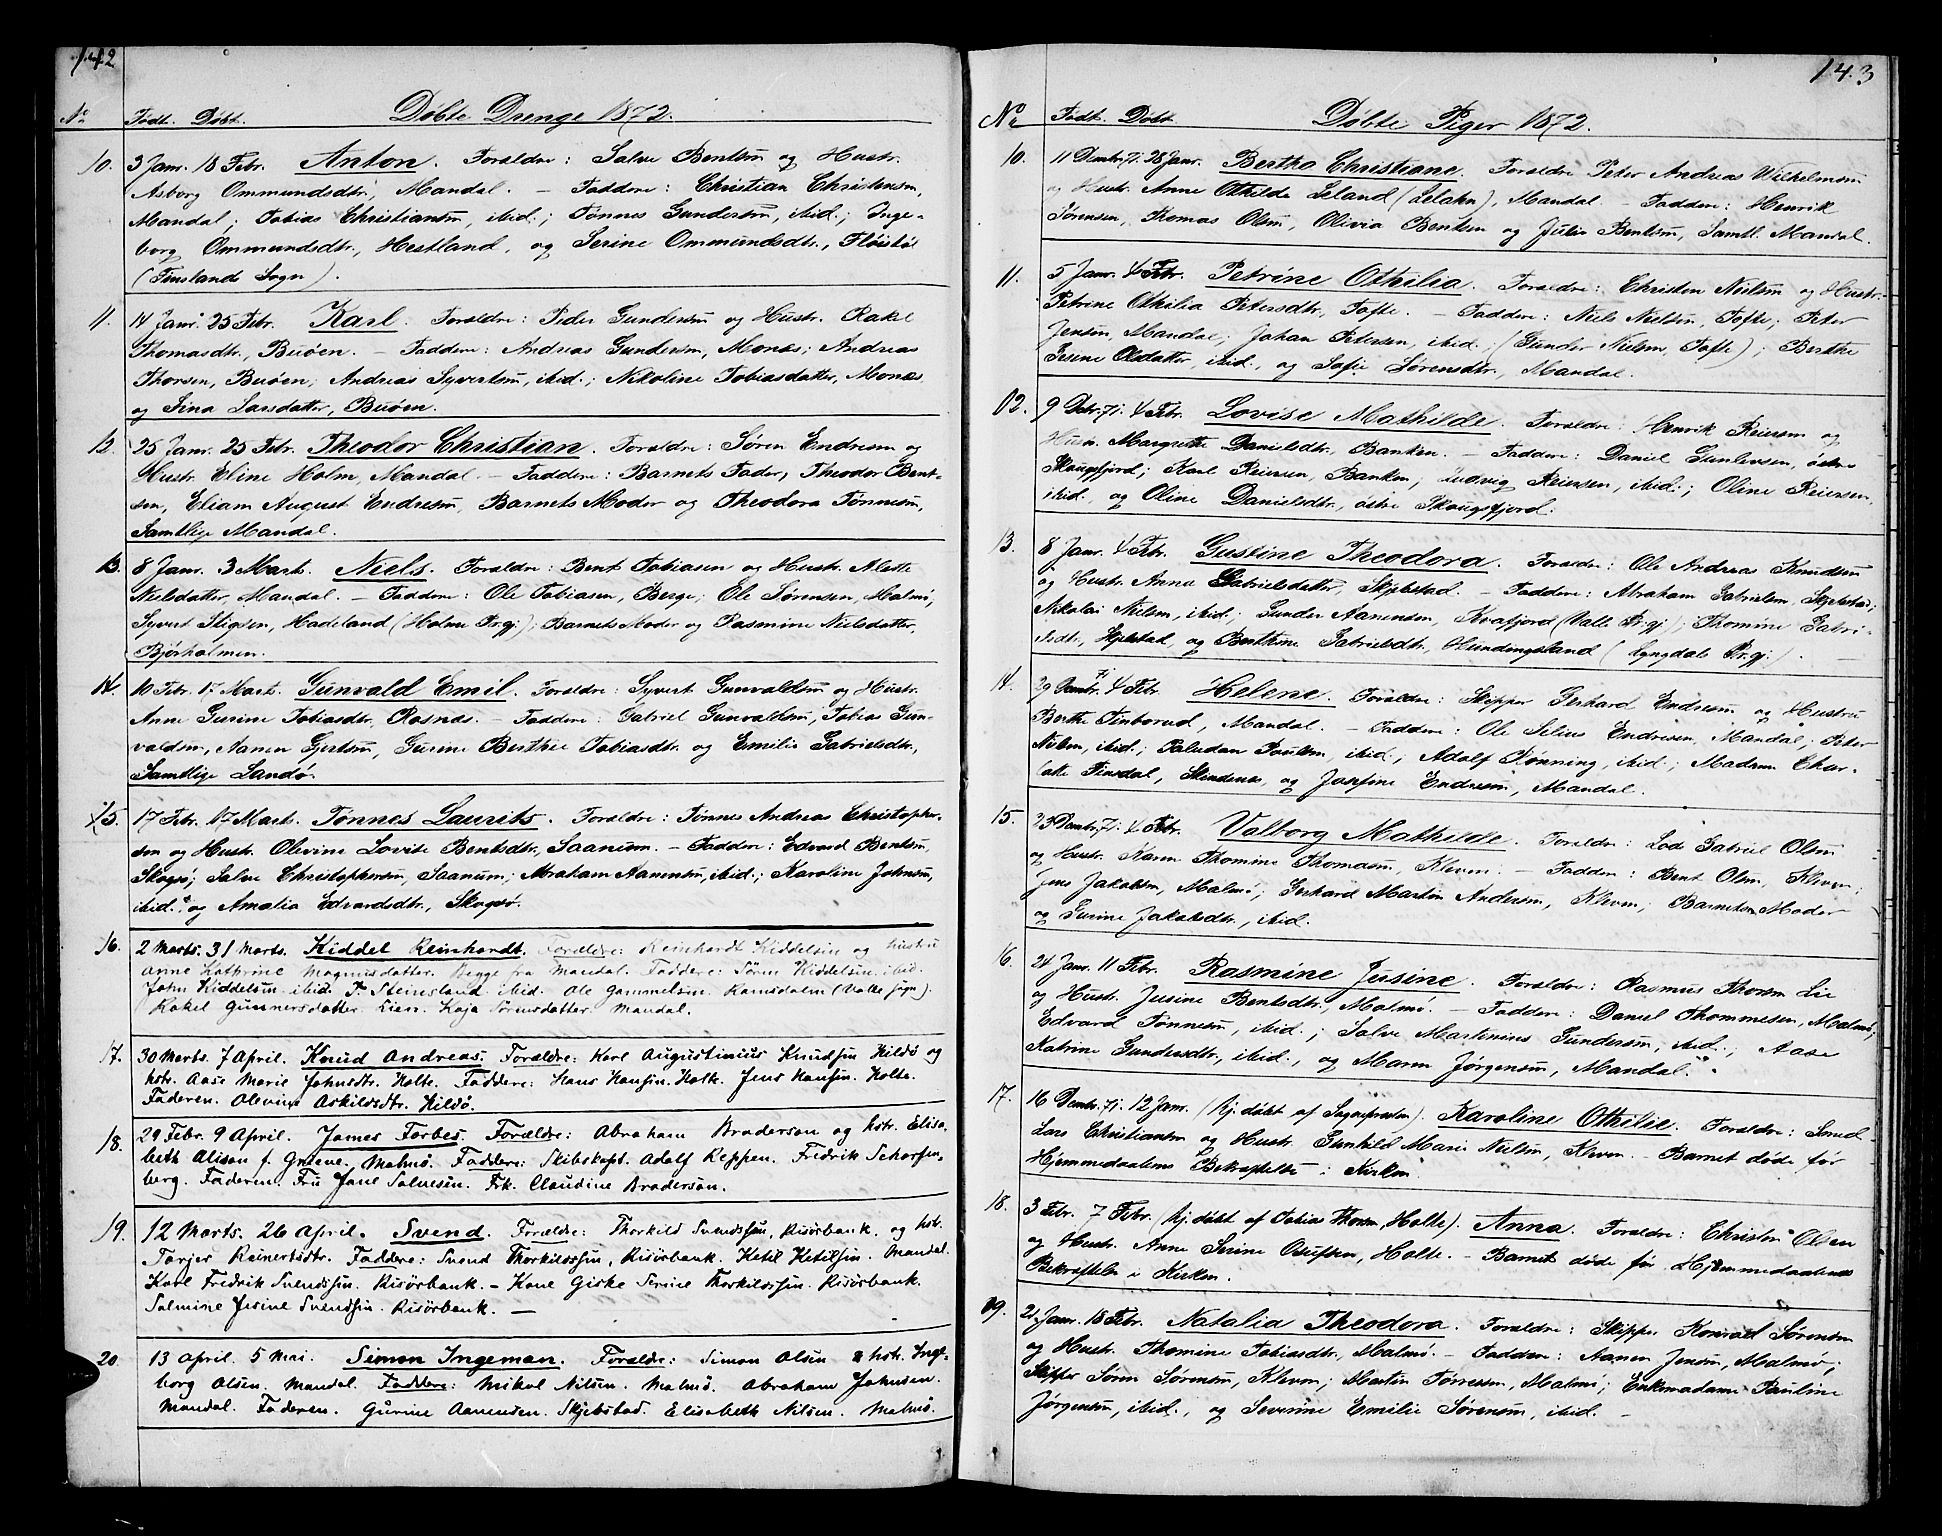 142
No Født. Døbt. Døbte Drenge 1872.
10. 3 Janr. 18 Febr. Anton. Forældre: Salve Bentsøn og Hustr.
Asborg Ommundsdtr., Mandal. — Faddere: Christian Christensøn,
Mandal; Tobias Christiansøn, ibid.; Tønnes Gundersøn, ibid.; Inge-
borg Ommundsdtr., Hestland, og Serine Ommundsdtr., Fløistøl
(Finslands Sogn).
11. 14 Janr. 25 Febr. Karl. Forældre: Peder Gundersøn og Hustr. Rakel
Thomasdtr., Buøen. — Faddere: Andreas Gundersøn, Monæs; Andreas
Thorsen, Buøen; Andreas Syvertsøn, ibid.; Nikoline Tobiasdatter, Monæs
og Sina Larsdatter, Buøen.
12. 25 Janr. 25 Febr. Theodor Christian. Forældre: Søren Endresøn og
Hustr. Eline Holm, Mandal. — Faddere: Barnets Fader, Theodor Bent-
sen, Eliam August Endresøn, Barnets Moder og Theodora Tønnesøn,
Samtlige Mandal.
13. 8 Janr. 3 Marts. Niels. Forældre: Bent Tobiasen og Hustr. Alette
Nielsdatter, Mandal. — Faddere: Ole Tobiasen, Berge; Ole Sørensen, Malmø;
Syvert Stigsen, Hadeland (Holme Pr.gj.); Barnets Moder og Rasmine Nielsdatter,
Bjørholmen.
14. 10 Febr. 17 Marts. Gunvald Emil. Forældre: Syvert Gunvaldsøn og Hustr.
Anne Gurine Tobiasdtr., Rosnæs. — Faddere: Gabriel Gunvaldsøn, Tobias Gun-
valdsøn, Aanen Gjertsøn, Gurine Berthee Tobiasdtr. og Emilie Gabrielsdtr.,
Samtlige Landø.
15. 17 Febr. 17 Marts. Tønnes Laurits. Forældre: Tønnes Andreas Christopher-
søn og Hustr. Olevine Lovise Bentsdtr., Saanum. — Faddere: Edvard Bentsøn,
Skogsø; Salve Christophersøn, Saanum; Abraham Aanensøn, ibid.; Karoline Johnsøn,
ibid., og Amalia Edvardsdtr., Skogsø.
16. 2 Marts. 31 Marts. Kiddel Reinhardt. Forældre: Reinhardt Kiddelsen og hustru
Anne Kathrine Magnusdatter. Begge fra Mandal. Faddere: Sønn Kiddelsen ibid.
John Kiddelsen ibid. P. Steinsland ibid. Ole Gammelsen. Ramsdalen (Valle Sogn).
Rakel Gunnersdatter. Lien. Kaja Sørensdatter. Mandal.
17. 30 Marts. 7 April. Knud Andreas. Forældre: Karl Augustinius Knudsen Hildø og
hstr. Aase Marie Johnsdtr. Holte. Faddere: Hans Hansen. Holte. Jens Hansen. Holte.
Faderen. Olevine Askildsdtr. Hildø.
18. 29 Febr. 9 April. James Forbes. Forældre: Abraham Brodersøn og hstr. Elisa-
beth Alison f. Greeve. Malmø. Faddere: Skibskapt. Adolf Reppen. Fredrik Scharfen-
berg. Faderen. Fru Jane Salvesen. Frk. Claudine Brodersøn.
19. 12 Marts. 26 April. Svend. Forældre: Thorkild Svendsen, Risørbank. og hstr.
Torjer Reinertsdtr. Faddere: Svend Thorkildsen, Risørbank. Ketil Ketilsen. Mandal.
Karl Fredrik Svendsen. Risørbank. — Kone Giske Serine Thorkildsen. Risørbank.
Salmine Jesine Svendsen. Risørbank. —
20. 13 April. 5 Mai. Simon Ingeman. Forældre: Simon Olsen & hstr. Inge-
borg Olsen. Mandal. Faddere: Mikal Nilsen. Malmø. Abraham Johnsen.
Mandal. Faderen. Gurine Aanensen. Skjebstad. Elisabeth Nilsen. Malmø.
143
No Født. Døbt Døbte Piger 1872.
10. 11 Decbr. 71. 28 Janr. Bertha Christiane. Forældre Peter Andreas Wilhelmsøn
og Hustr. Anne Othilde Leland (Lelahn), Mandal. — Faddere: Henrik
Sørensen, Thomas Olsøn, Olivia Bentsen og Julia Bentsøn, Samtl. Mandal.
11. 5 Janr. 4 Febr. Petrine Othilia. Forældre: Christen Nielsøn og Hustr.
Petrine Othilia Petersdtr., Tofte. — Faddere: Niels Nielsøn, Tofte; Peter
Jensøn, Mandal; Johan Petersen, ibid.; (Gunder Nielsøn, Tofte); Berthe
Serine Olsdatter, ibid., og Sofie Sørensdtr., Mandal.
12. 9 Decbr. 71. 4 Febr. Lovise Mathilde. Forældre: Henrik Reiersøn og
Hustr. Margrethe Danielsdtr., Banken. — Faddere: Daniel Gunlevsen, østre
Skougsfjord; Karl Reiersen, Banken; Ludvig Reiersen, ibid.; Oline Reiersen,
ibid., og Oline Danielsdtr., østre Skougsfjord.
13. 8 Janr. 4 Febr. Gustine Theodora. Forældre: Ole Andreas Knudsøn
og Hustr. Anna Gabrielsdatter, Skjebstad. — Faddere: Abraham Gabrielsøn, Skjebstad;
Nikolai Nielsøn, ibid.; Gunder Aanensøn, Kvafjord (Valle Pr.gj.); Thomine Gabri-
elsdtr., Skjebstad, og Berthine Gabrielsdtr., Hunddingsland (Lyngdals Pr.gj.). —
14. 29 Decbr. 71 4 Febr. Helene. Forældre: Skipper Gerhard Endresøn og Hustru
Berthe Finborud, Mandal. — Faddere: Ole Selius Endresen, Mandal; Peter
Nielsøn, ibid.; Paludan Paulsøn, ibid.; Adolf Rønning, ibid.; Madam Char-
lotte Finsdal, Skindenæs, og Josefine Endresøn, Mandal.
15. 23 Decbr. 71. 4 Febr. Valborg Mathilde. Forældre: Lods Gabriel Olsøn
og Hustr. Karen Thomine Thomasøn, Kleven. — Faddere: Bent Olsøn, Kleven;
Jens Jakobsøn, Malmø; Gerhard Martin Andersøn, Kleven; Barnets Moder
og Gurine Jakobsdtr., ibid.
16. 24 Janr. 11 Febr. Rasmine Jusine. Forældre: Rasmus Thorsøn Lie
og Hustr. Jusine Bentsdtr., Malmø. — Faddere: Daniel Thommesen, Malmø;
Edvard Tønnesøn, ibid.; Salve Martenius Gundersøn, ibid.; Aase
Katrine Gundersdtr., ibid., og Maren Jørgensøn, Mandal.
17. 16 Decbr. 71. 12 Janr. (Hj. døbt af Sognepræsten). Karoline Othilie. Forældre: Smed
Lars Christiansøn og Hustr. Gunhild Marie Nielsøn, Kleven. — Barnet døde før
Hjemmedaabens Bekræftelse i Kirken.
18. 3 Febr. 7 Febr. (Hj. døbt af Tobias Thorsøn, Holte). Anna. Forældre: Christen Olsen
og Hustr. Anne Serine Osufsen, Holte. — Barnet døde før Hjemmedaabens
Bekræftelse i Kirken.
19. 21 Janr. 18 Febr. Natalia Theodora. Forældre: Skipper Konrad Sørensøn
og Hustr. Thomine Tobiasdtr., Malmø. — Faddere: Aanen Jensøn, Malmø;
Skipper Sørn Sørensøn, Kleven; Martin Torresøn, Malmø; Enkemadame Pauline
Jørgensøn, ibid., og Severine Emilie Sørensøn, ibid. —